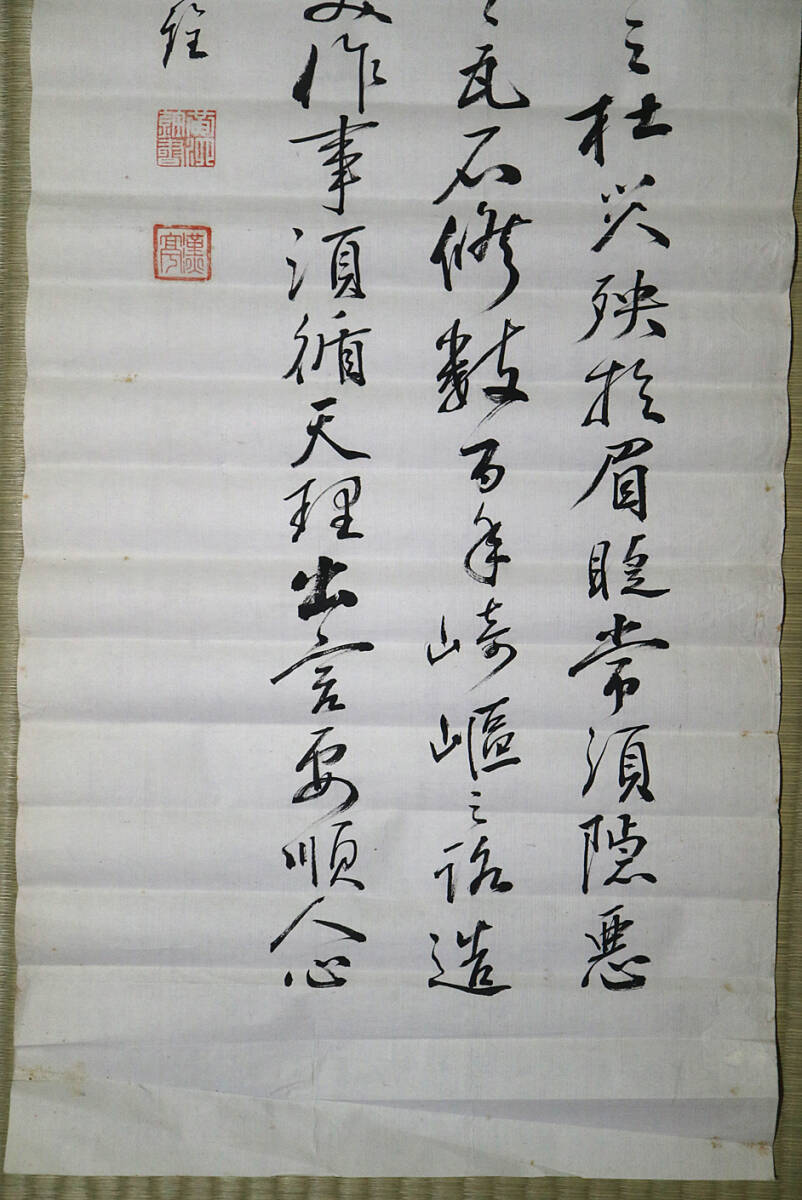 之杜災殃於眉睫常須隱惡
瓦石修數百年崎嶇之路造
美作事須循天理出言要順人心
銓